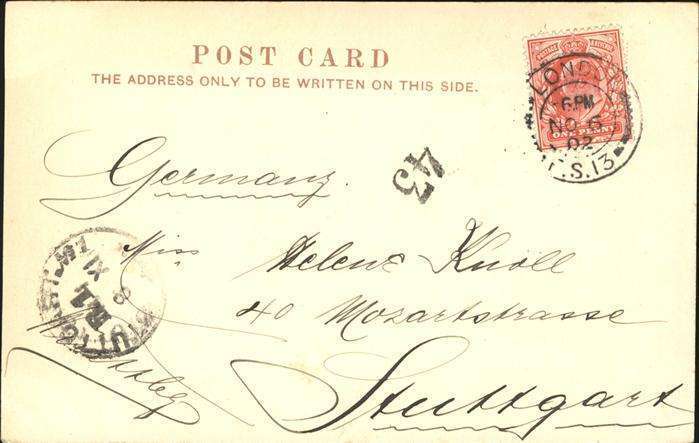 POST CARD
THE ADDRESS ONLY TO BE WRITTEN ON THIS SIDE.
POSTAGE REVENUE
ONE PENNY
LONDON
6 PM
NO 6
02
F.S. 13
43
Germany.
Miss Helene Knoll
40 Mozartstrasse
Stuttgart
STUTTGART
XI